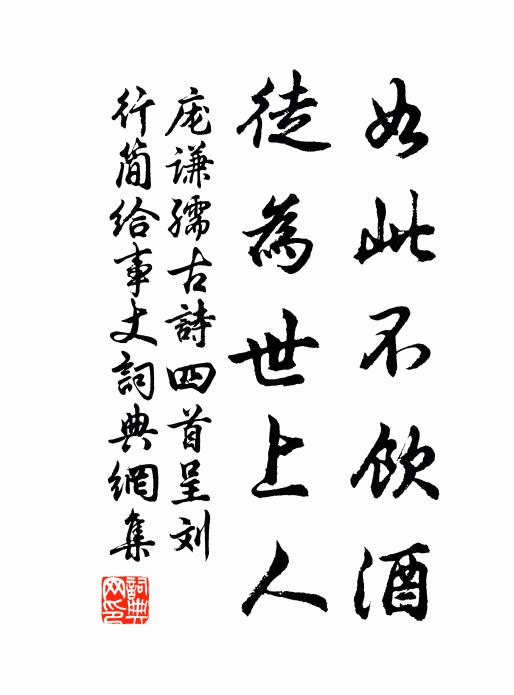 如此不飲酒
徒為世上人
庞谦孺古詩四首呈刘
行簡給事丈詞典網集
詞典网印